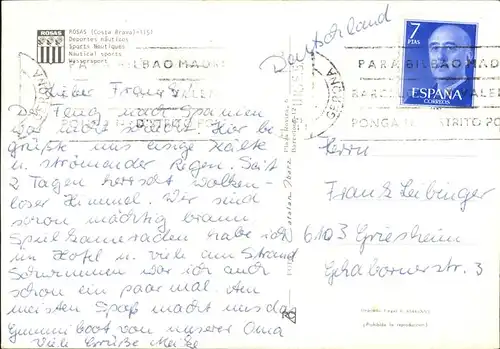 ROSAS
ROSAS (Costa Brava)-(15)
Deportes náuticos
Sports Nautiques
Nautical sports
Wassersport
Deutschland
7
PTAS
ESPAÑA
CORREOS
GERONA
GERONA
PARA BILBAO MADR
BARC VALEN
PONGA DISTRITO PO
Lieber Frank!
Der Flug nach Spanien
war nicht schön. Hier be-
grüßte uns eisige Kälte
u. strömender Regen. Seit
2 Tagen herrscht wolken-
loser Himmel. Wir sind
schon mächtig braun.
Spielkameraden habe ich
im Hotel u. viele am Strand
Schwimmen war ich auch
schon ein paar mal. Am
meisten Spaß macht uns das
Gummiboot von unserer Oma
Viele Grüße Meike
Herrn
Frank Leibinger
6103 Griesheim
Gehabornerstr. 3
(Prohibida la reproducción)